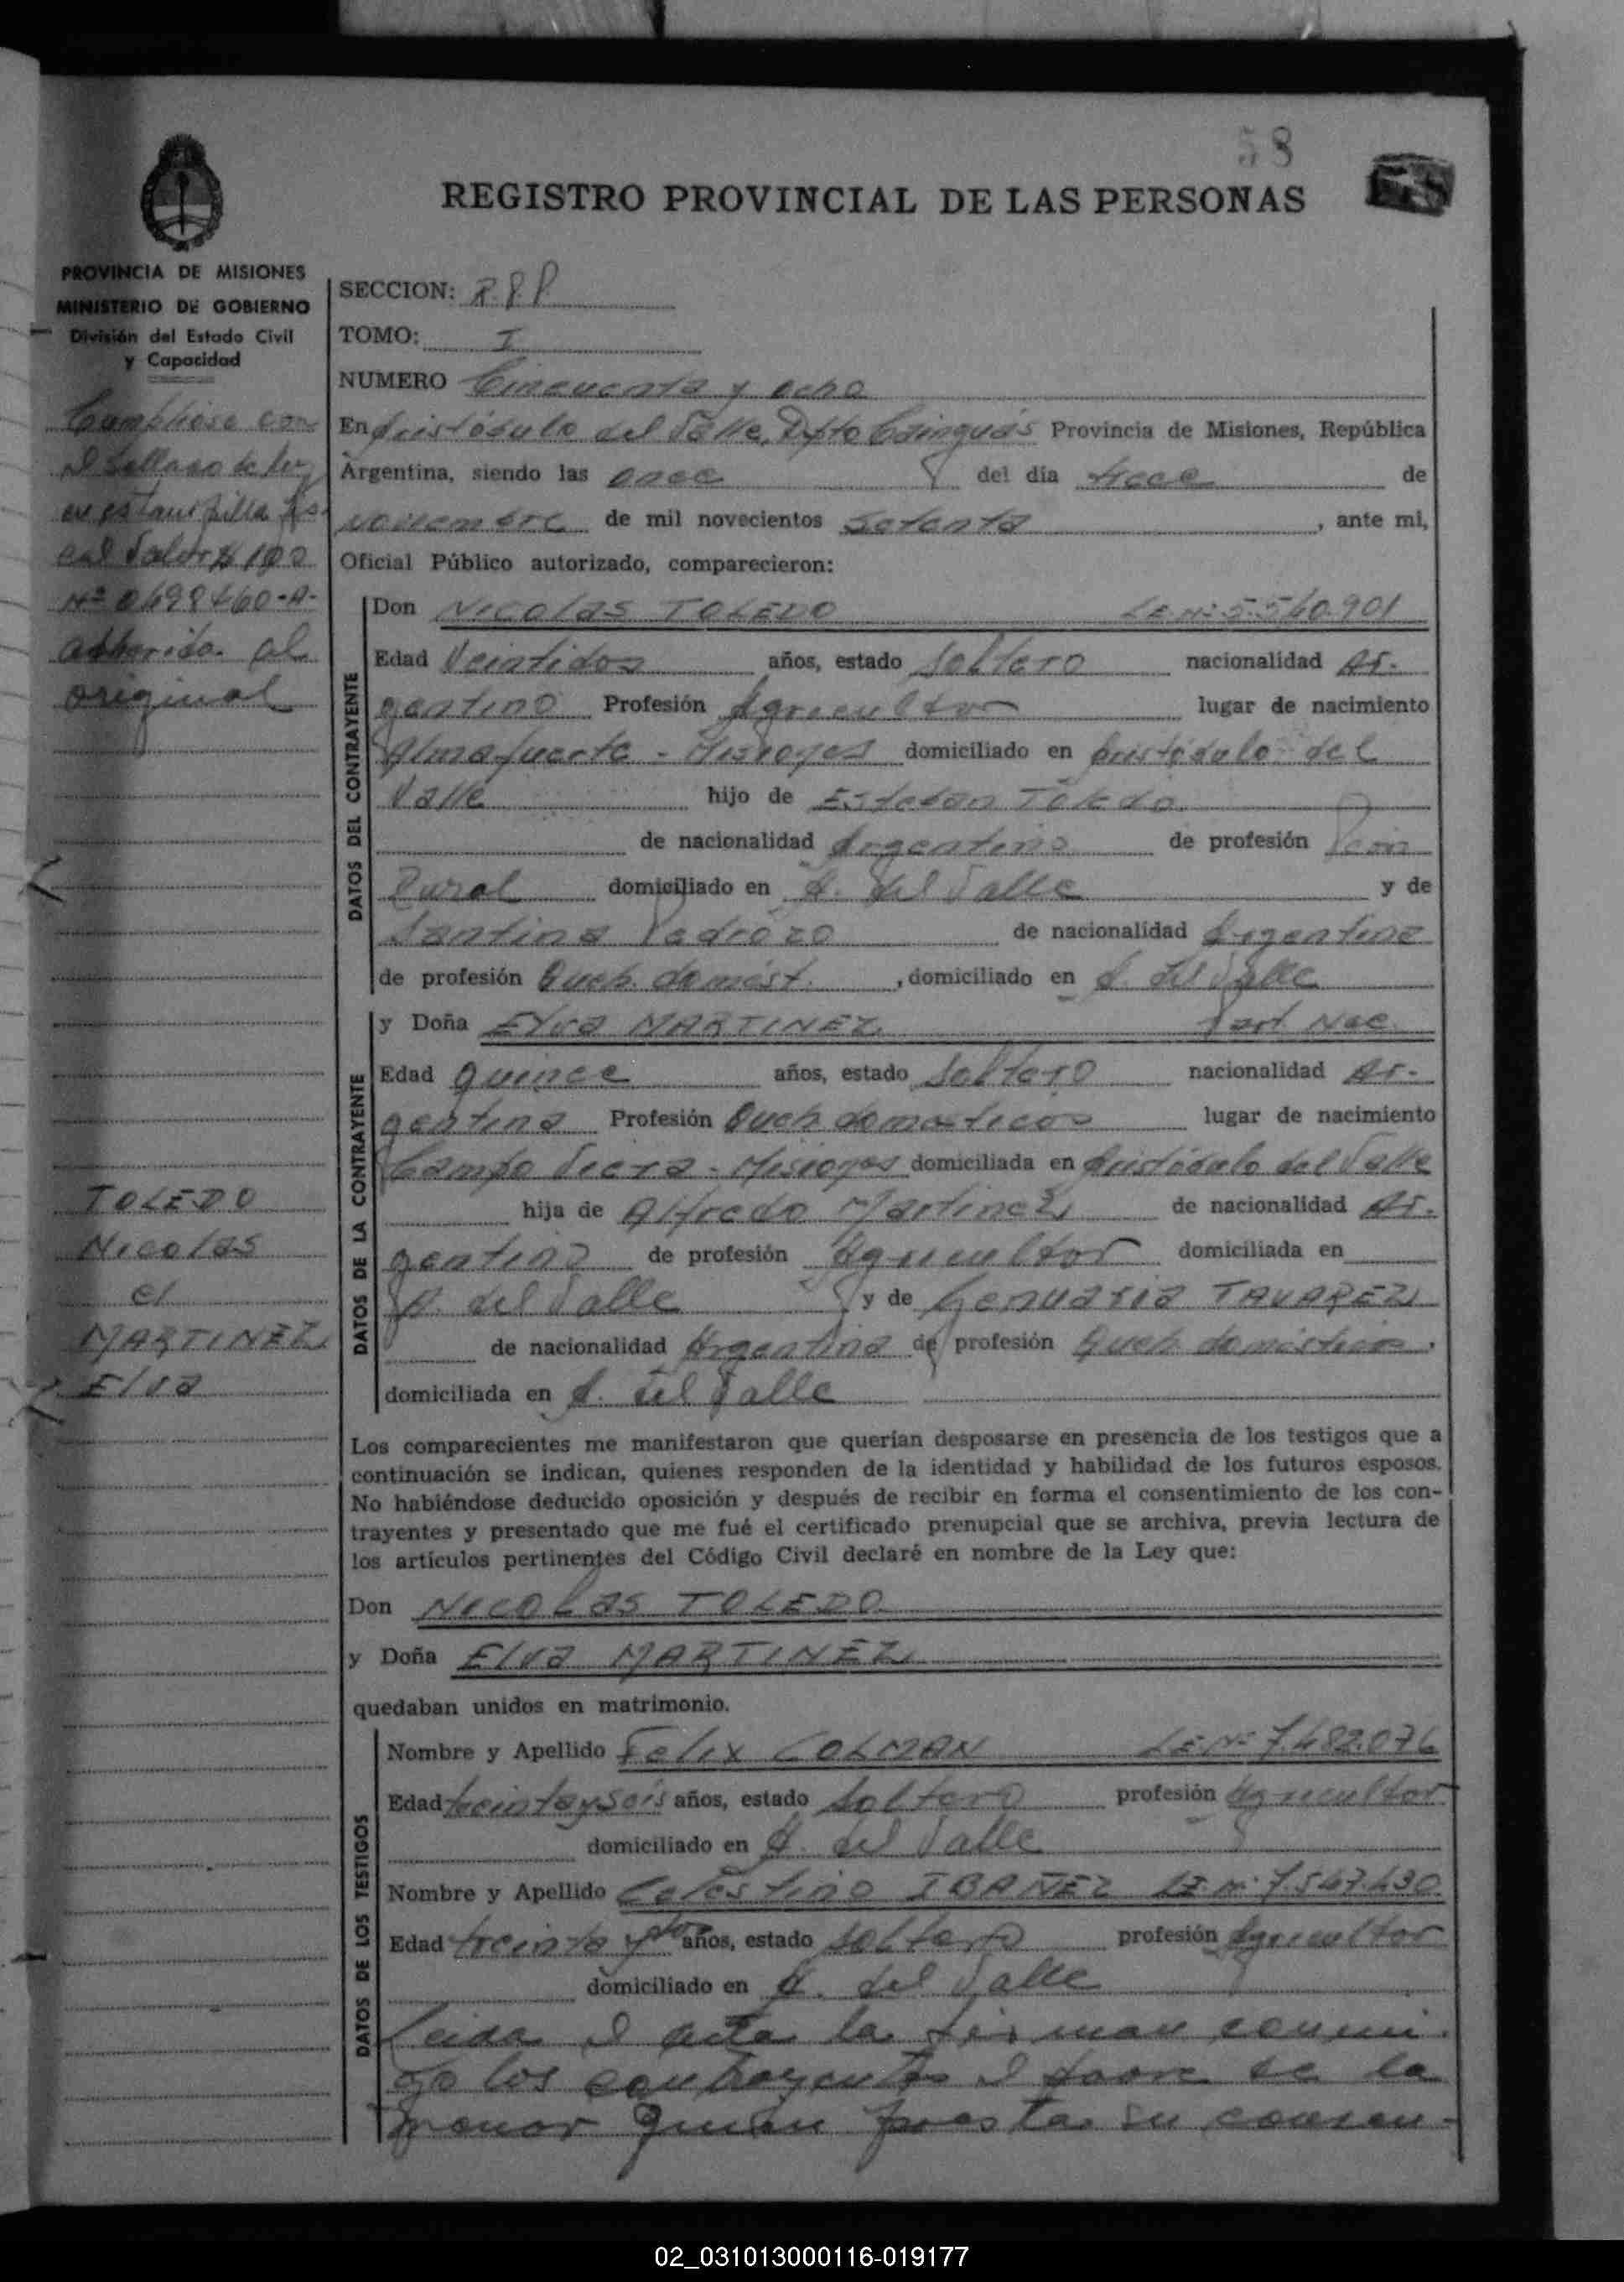 58
REGISTRO PROVINCIAL DE LAS PERSONAS
PROVINCIA DE MISIONES
MINISTERIO DE GOBIERNO
División del Estado Civil
y Capacidad
Cumpliose con
el sellado de ley
en estampilla fis-
cal valor $ 100
Nº 0698460-A-
adherida al
original
TOLEDO
Nicolas
c/
MARTINEZ
Elva
SECCION: R.P.P.
TOMO: I
NUMERO Cincuenta y ocho
En Aristóbulo del Valle, Dpto Cainguás Provincia de Misiones, República
Argentina, siendo las once del día trece de
noviembre de mil novecientos setenta, ante mi,
Oficial Público autorizado, comparecieron:
DATOS DEL CONTRAYENTE
Don Nicolas TOLEDO L.E.Nº 5.560.901
Edad Veintidos años, estado soltero nacionalidad Ar-
gentino Profesión Agricultor lugar de nacimiento
Almafuerte - Misiones domiciliado en Aristóbulo del
Valle hijo de Esteban Toledo
de nacionalidad Argentino de profesión Peón
Rural domiciliado en A. del Valle y de
Santina Pedrozo de nacionalidad Argentina
de profesión Queh. domést. , domiciliado en A. del Valle
DATOS DE LA CONTRAYENTE
y Doña Elva MARTINEZ Part Nac
Edad quince años, estado soltero nacionalidad Ar-
gentina Profesión Queh domesticos lugar de nacimiento
Campo Viera - Misiones domiciliada en Aristóbulo del Valle
hija de Alfredo Martinez de nacionalidad Ar-
gentino de profesión Agricultor domiciliada en
A. del Valle y de Genuaria TAVAREZ
de nacionalidad Argentina de profesión Queh domésticos.
domiciliada en A. del Valle
Los comparecientes me manifestaron que querían desposarse en presencia de los testigos que a
continuación se indican, quienes responden de la identidad y habilidad de los futuros esposos.
No habiéndose deducido oposición y después de recibir en forma el consentimiento de los con-
trayentes y presentado que me fué el certificado prenupcial que se archiva, previa lectura de
los artículos pertinentes del Código Civil declaré en nombre de la Ley que:
Don Nicolas TOLEDO
y Doña Elva MARTINEZ
quedaban unidos en matrimonio.
DATOS DE LOS TESTIGOS
Nombre y Apellido Felix COLMAN L.E.Nº 7.482.076
Edad treinta y seis años, estado soltero profesión Agricultor
domiciliado en A. del Valle
Nombre y Apellido Celestino IBAÑEZ L.E.Nº 7.547.430
Edad treinta y dos años, estado soltero profesión Agricultor
domiciliado en A. del Valle
Leida el acta la firman conmi-
go los contrayentes el padre de la
menor quien presta su consen-
02_031013000116-019177